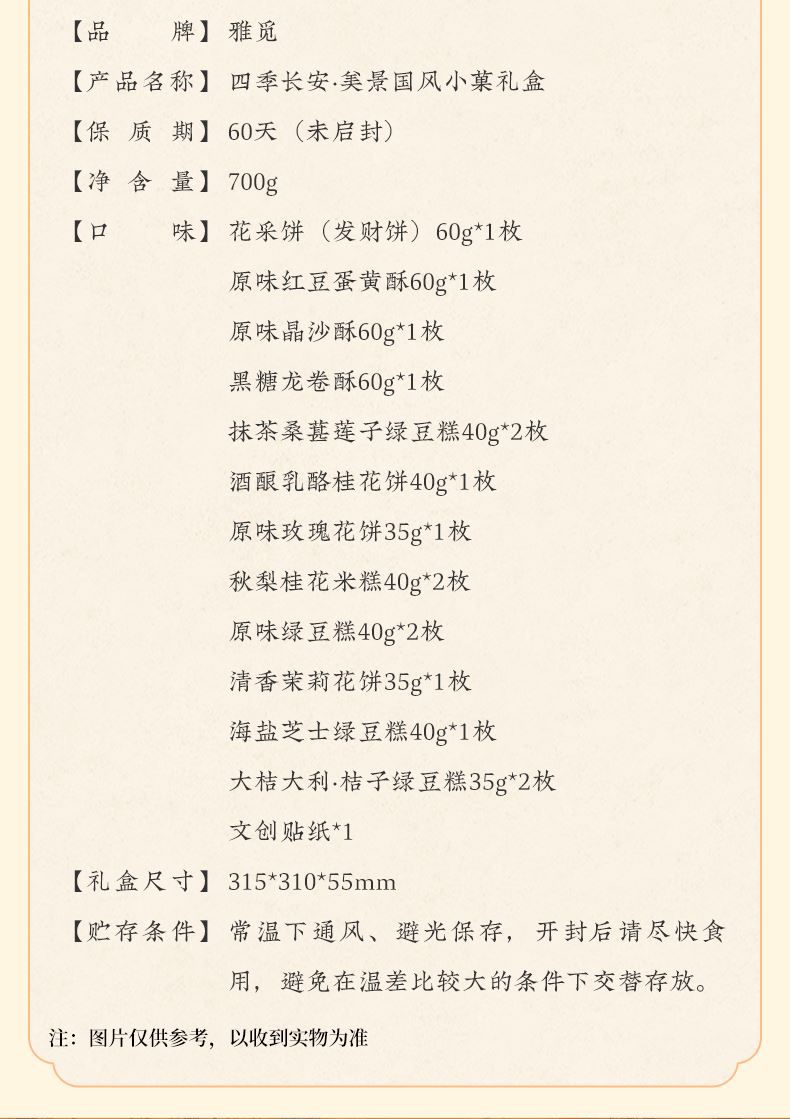 【品牌】雅觅
【产品名称】四季长安·美景国风小菓礼盒
【保质期】60天（未启封）
【净含量】700g
【口味】花采饼（发财饼）60g*1枚
原味红豆蛋黄酥60g*1枚
原味晶沙酥60g*1枚
黑糖龙卷酥60g*1枚
抹茶桑葚莲子绿豆糕40g*2枚
酒酿乳酪桂花饼40g*1枚
原味玫瑰花饼35g*1枚
秋梨桂花米糕40g*2枚
原味绿豆糕40g*2枚
清香茉莉花饼35g*1枚
海盐芝士绿豆糕40g*1枚
大桔大利·桔子绿豆糕35g*2枚
文创贴纸*1
【礼盒尺寸】315*310*55mm
【贮存条件】常温下通风、避光保存，开封后请尽快食
用，避免在温差比较大的条件下交替存放。
注：图片仅供参考，以收到实物为准